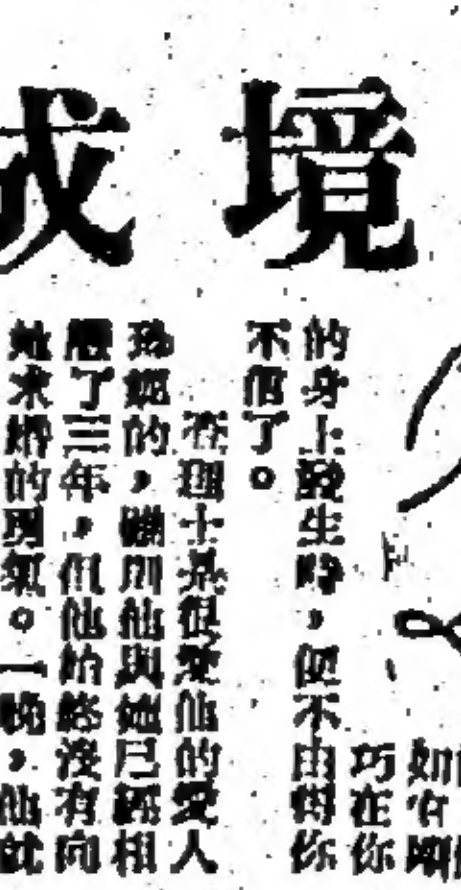 境成
巧在你
的身上發生時，便不由得你
不信了。
查理士是很愛他的愛人
瑙妮的，雖則他與她已經相
戀了三年，但他始終沒有向
她求婚的勇氣。一晚，他就